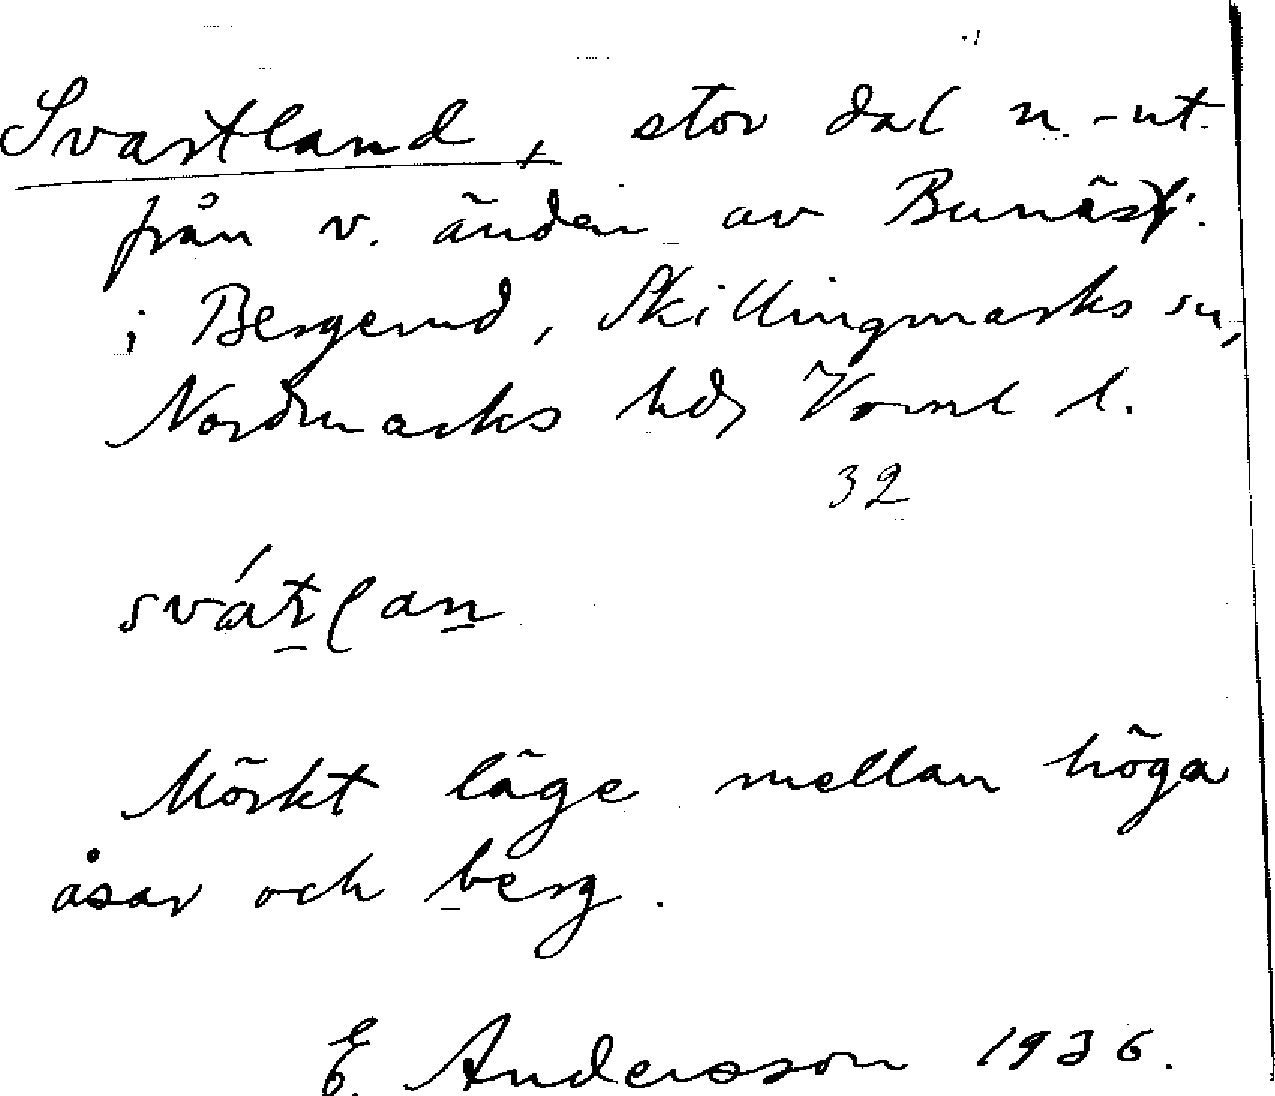 Svartland, stor dal n-ut
från v. änden av Bunäsf.
i Bergerud, Skillingmarks sn,
Nordmarks hd, Värml l.
32
svátlan
Mörkt läge mellan höga
åsar och berg.
E. Andersson 1936.